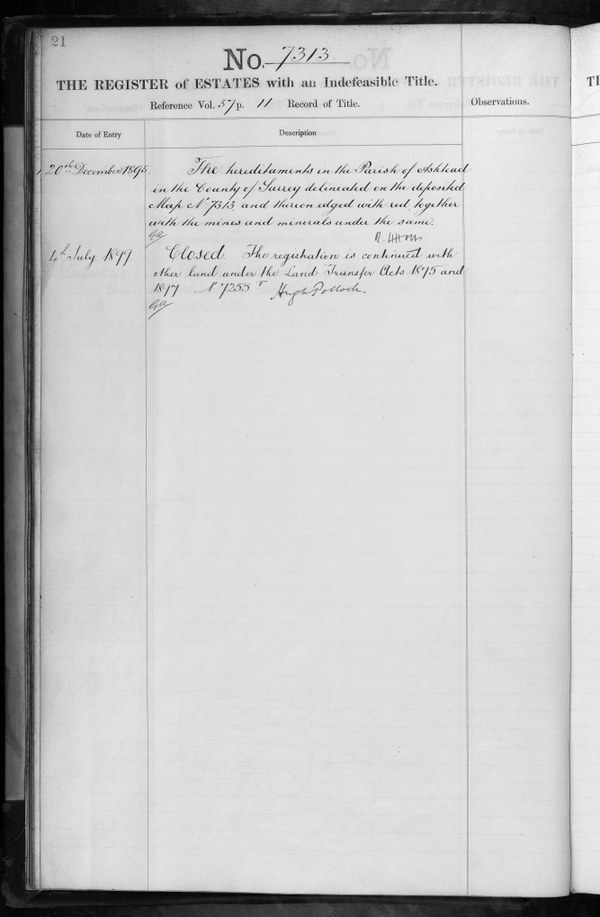 21
No. 7313
THE REGISTER of ESTATES with an Indefeasible Title.
Reference Vol. 57 p. 11 Record of Title.
Observations.
Date of Entry
Description
20th December 1895.
The hereditaments in the Parish of Ashtead
in the County of Surrey delineated on the deposited
Map No 7313 and thereon edged with red, together
with the mines and minerals under the same.
4th July 1899
Closed. The registration is continued with
other land under the Land Transfer Acts 1875 and
1897 No 7355
Hugh Pollock.